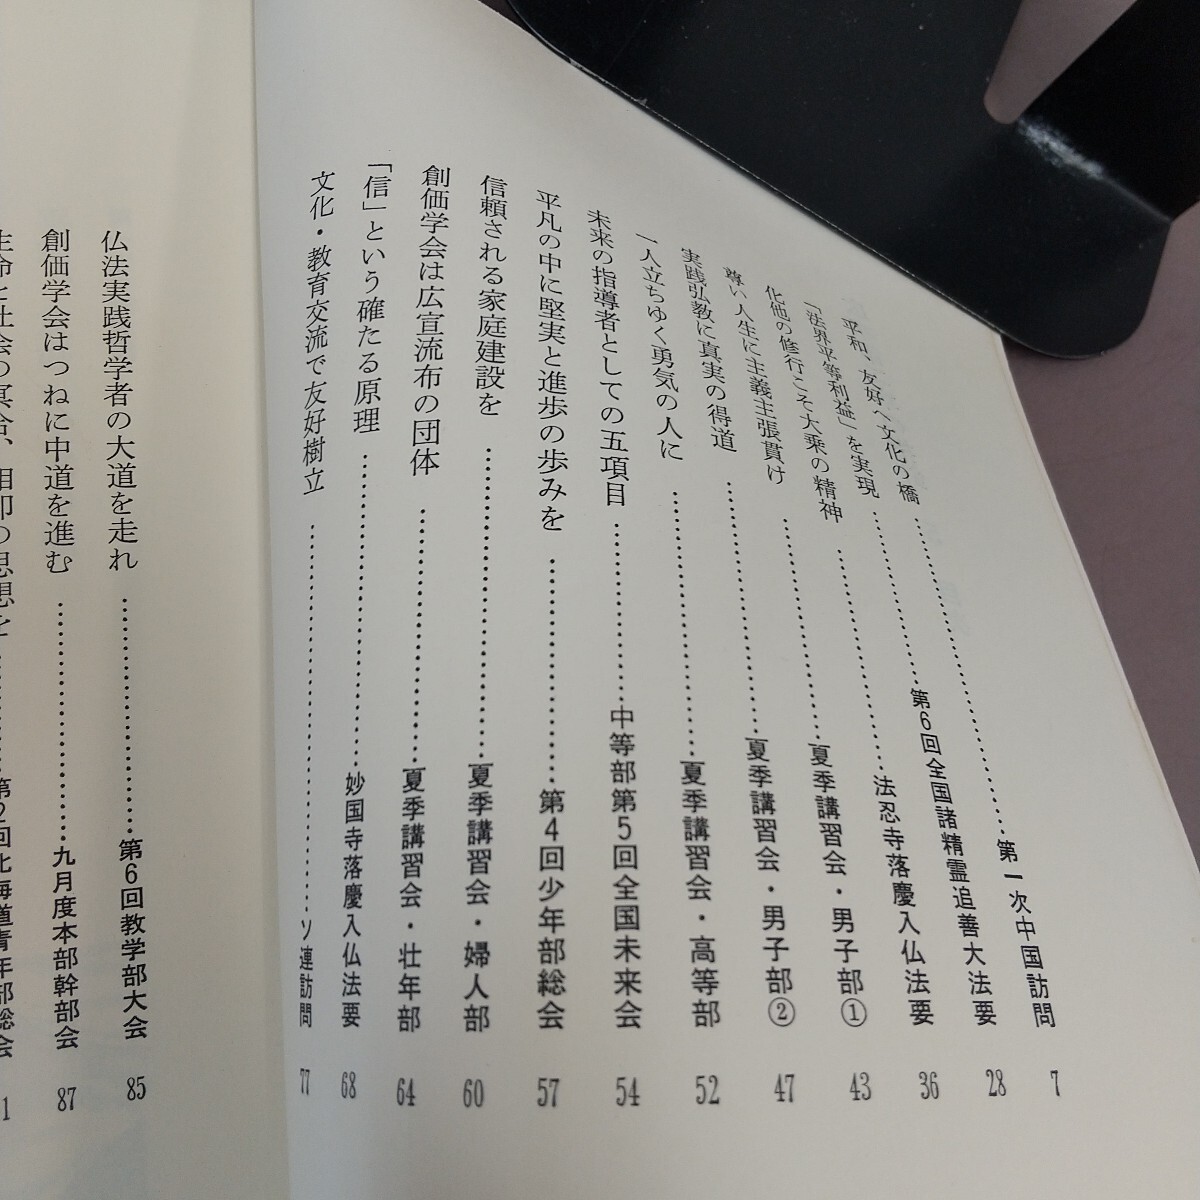 平和、友好へ文化の橋………第一次中国訪問 7
「法界平等利益」を実現………第6回全国諸精霊追善大法要 28
化他の修行こそ大乗の精神………法忍寺落慶入仏法要 36
尊い人生に主義主張貫け………夏季講習会・男子部① 43
実践弘教に真実の得道………夏季講習会・男子部② 47
一人立ちゆく勇気の人に………夏季講習会・高等部 52
未来の指導者としての五項目………中等部第5回全国未来会 54
平凡の中に堅実と進歩の歩みを………第4回少年部総会 57
信頼される家庭建設を………夏季講習会・婦人部 60
創価学会は広宣流布の団体………夏季講習会・壮年部 64
「信」という確たる原理………妙国寺落慶入仏法要 68
文化・教育交流で友好樹立………ソ連訪問 77
仏法実践哲学者の大道を走れ………第6回教学部大会 85
創価学会はつねに中道を進む………九月度本部幹部会 87
生命と社会の冥合、相即の思想を………第2回北海道青年部総会